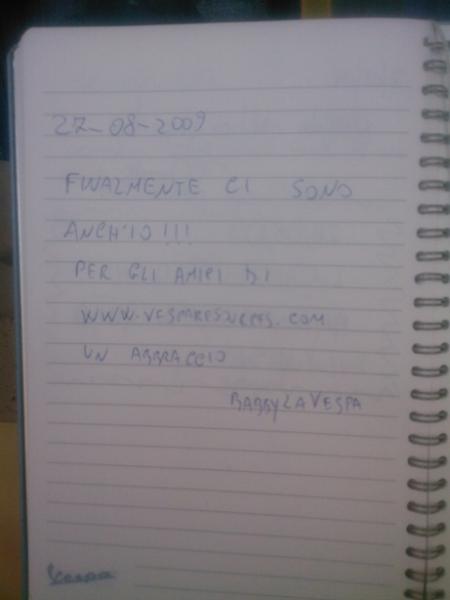 27-08-2009
FINALMENTE CI SONO
ANCH'IO!!!
PER GLI AMICI DI
WWW.VESPARESOURCES.COM
UN ABBRACCIO
BABBYLAVESPA